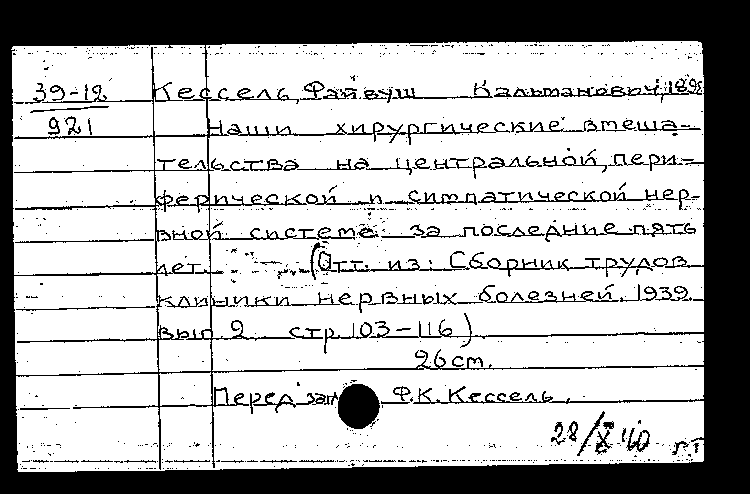 39-12 Кессель, Файвуш Кальманович, 189
921 Наши хирургические вмеша-
тельства на центральной, пери-
ферической и симпатической нер-
вной система за последние пять
лет. (Отт. из: Сборник трудов
клиники нервных болезней. 1939.
вып. 2 стр. 103-116)
26 см.
Перед загл. Ф.К. Кессель.
28/X 40 г.